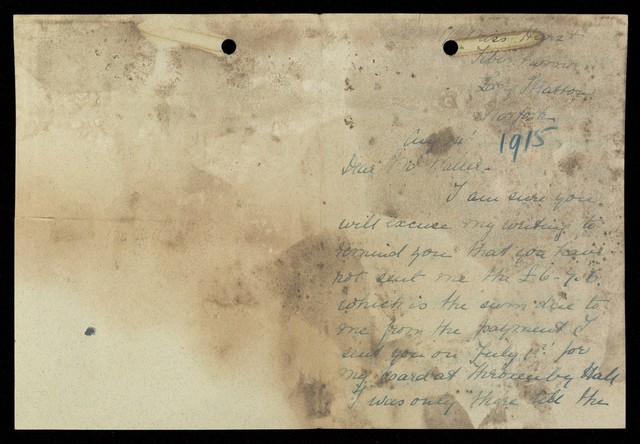 Long Stratton
Norfolk
Aug 4th
1915
Dear Mr Waller.
I am sure you
will excuse my writing to
remind you that you have
not sent me the £6-7-6.
which is the sum due to
me from the payment I
sent you on July 1st for
my board at Thrownby Hall
I was only there till the